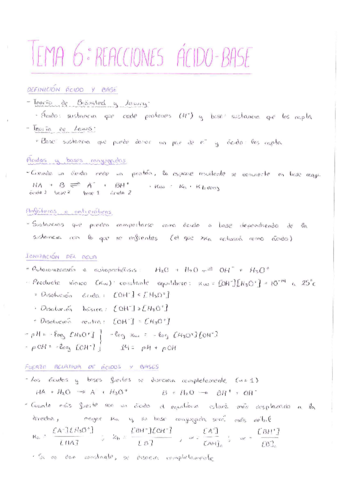 TEMA 6: REACCIONES ÁCIDO-BASE
DEFINICIÓN ÁCIDO Y BASE
- Teoría de Brönsted y Lowry:
- Ácido: sustancia que cede protones (H⁺) y base: sustancia que los capta.
- Teoría de Lewis:
- Base: sustancia que puede donar un par de e⁻ y ácido los capta.
Ácidos y bases conjugadas
- Cuando un ácido cede un protón, la especie resultante se convierte en base conj.
HA + B ⇌ A⁻ + BH⁺
ácido 1 base 2 base 1 ácido 2
Anfóteros o
- Sustancias que pueden comportarse como ácido o base dependiendo de la
sustancia con la que se enfrenten (el que más actuará como ácido)
IONIZACIÓN DEL AGUA
- Autoionización o autoprotólisis H₂O + H₂O ⇌ OH⁻ + H₃O⁺
- Producto iónico (Kw): constante equilibrio: Kw = [OH⁻][H₃O⁺] = 10⁻¹⁴ a 25°C
+ Disolución ácida: [OH⁻] < [H₃O⁺]
+ Disolución básica: [OH⁻] > [H₃O⁺]
+ Disolución neutra: [OH⁻] = [H₃O⁺]
- pH = -log [H₃O⁺] -log Kw = -log [H₃O⁺][OH⁻]
- pOH = -log [OH⁻] 14 = pH + pOH
FUERZA RELATIVA DE ÁCIDOS Y BASES
- Los ácidos y bases fuertes se disocian completamente (α = 1)
HA + H₂O → A⁻ + H₃O⁺ B + H₂O → BH⁺ + OH⁻
- Cuanto más fuerte sea un ácido el equilibrio estará más desplazado a la
derecha, mayor Ka y su base conjugada será más débil
Ka = [A⁻][H₃O⁺] / [HA] ; Kb = [BH⁺][OH⁻] / [B] α = [A⁻] / [AH]₀ α = [BH⁺] / [B]₀
se disocia completamente